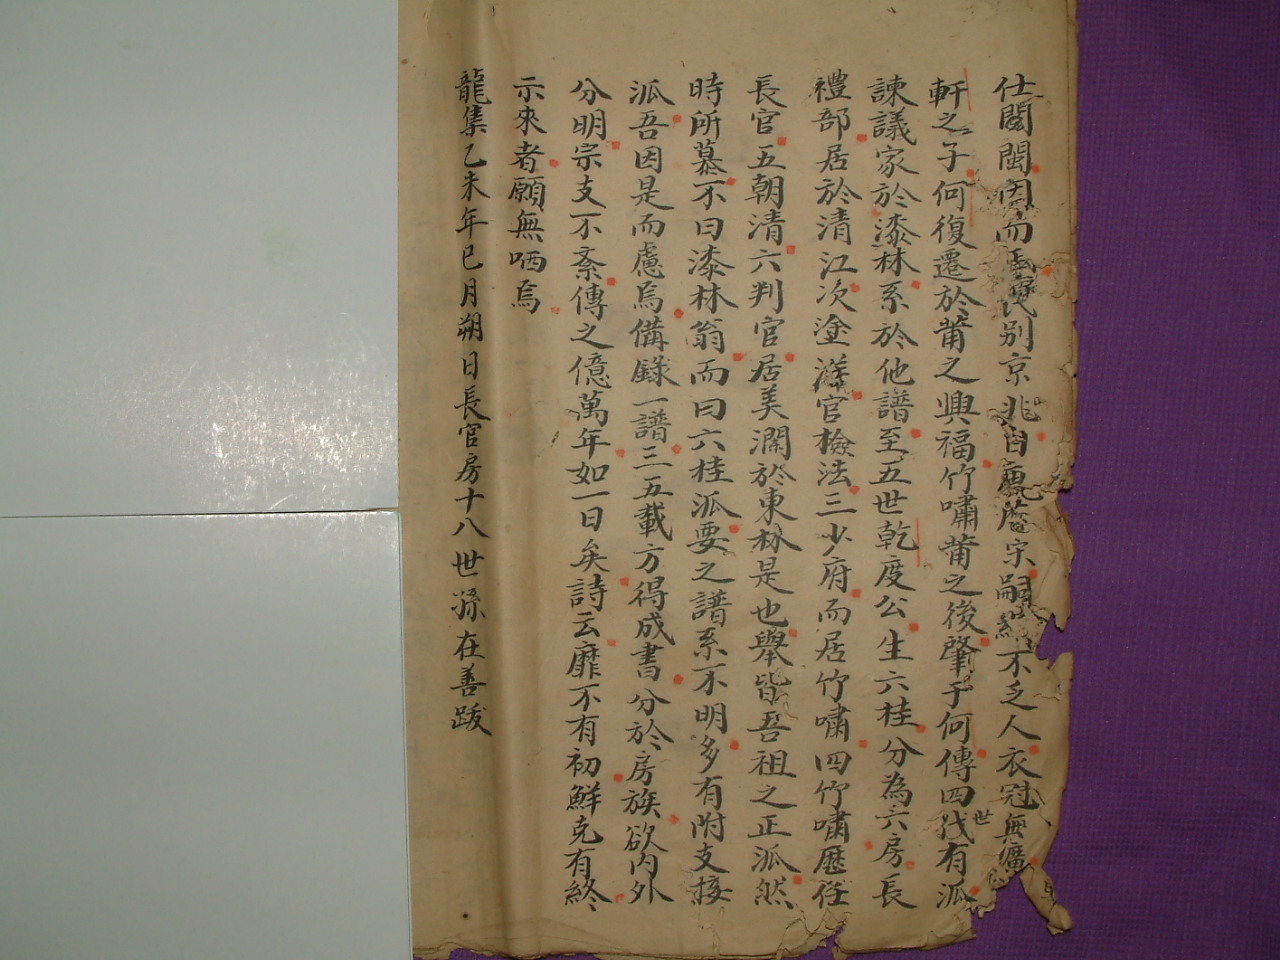 仕閩閩因而氏別京兆自宗嗣不乏人衣冠無
軒之子何復遷於莆之興福竹嘯莆之後肇于何傳四世代有派
諫議家於漆林系於他譜至五世乾度公生六桂分為六房長
禮部居於清江次塗漾官檢法三少府而居竹嘯四竹嘯歷任
長官五朝清六判官居美瀾於東林是也舉皆吾祖之正派然
時所慕不曰漆林翁而曰六桂派要之譜系不明多有附支接
派吾因是而慮焉備錄一譜三五載方得成書分於房族欲內外
分明宗支不紊傳之億萬年如一日矣詩云靡不有初鮮克有終
示來者願無哂焉
龍集乙未年巳月朔日長官房十八世孫在善跋